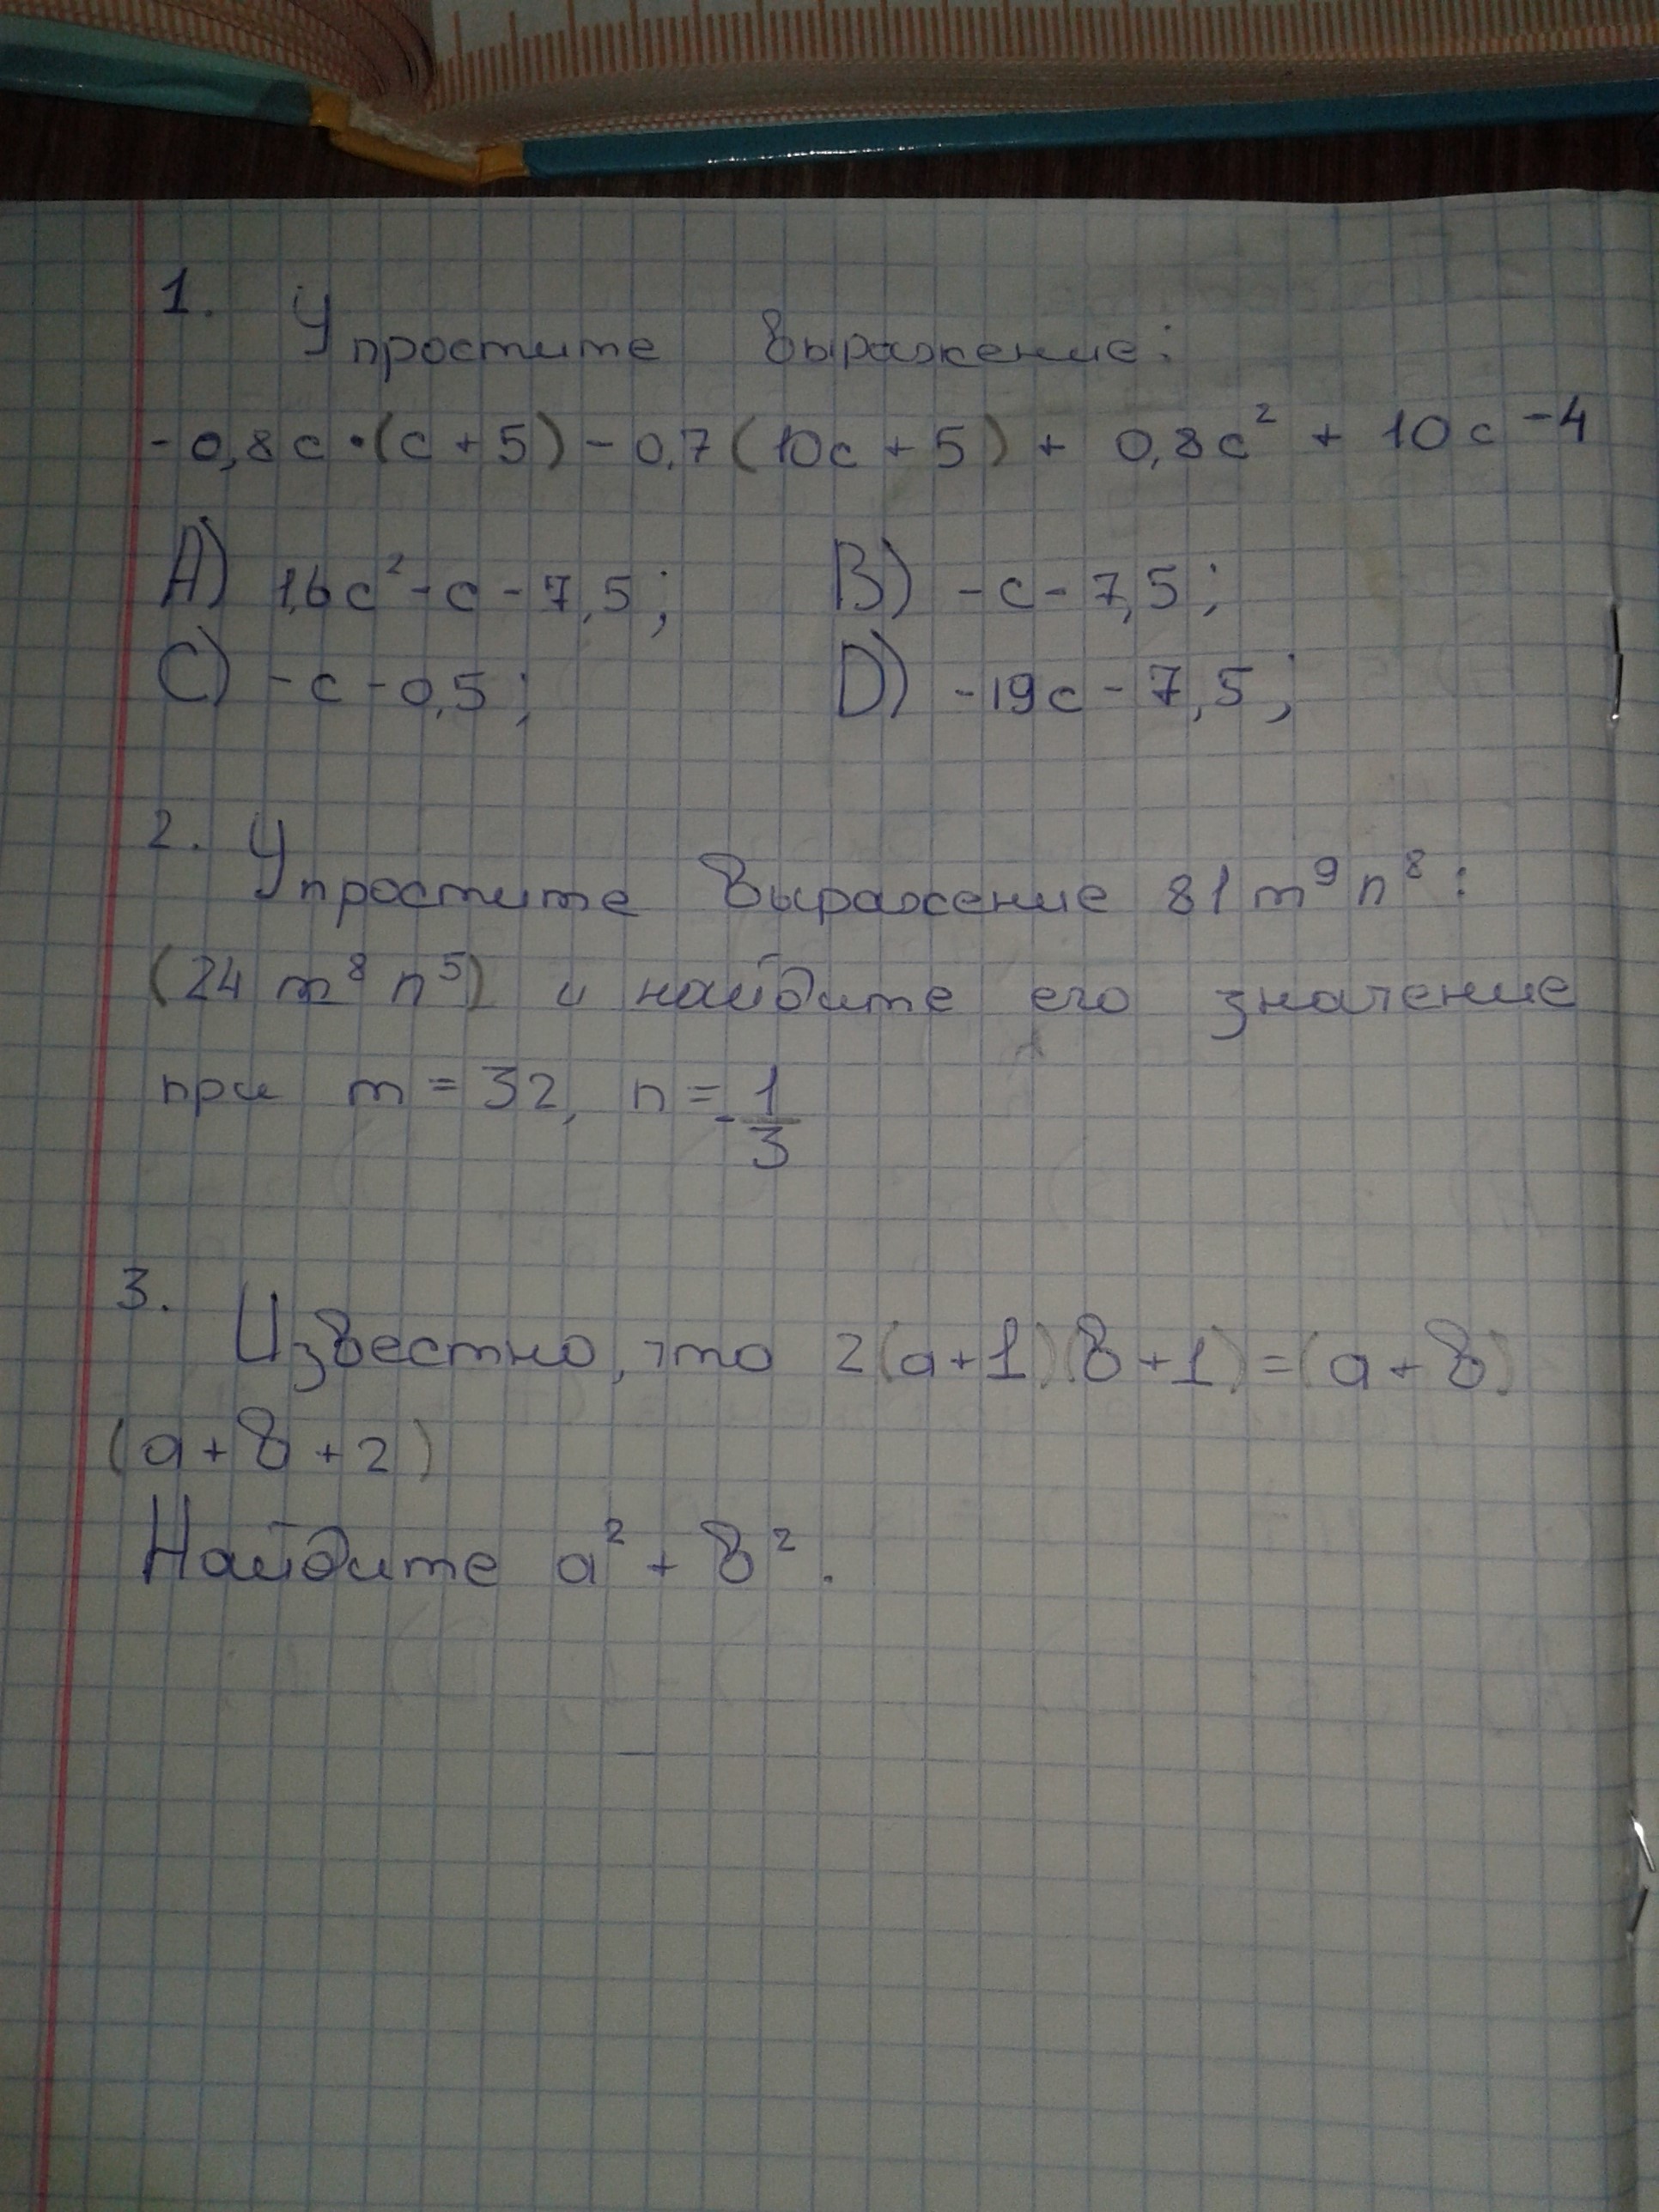 1. Упростите выражение:
-0,8c·(c+5)-0,7(10c+5)+0,8c²+10c-4
A) 1,6c²-c-7,5; B) -c-7,5;
C) -c-0,5; D) -19c-7,5;
2. Упростите выражение 81m⁹n⁸:
(24m⁸n⁵) и найдите его значение
при m=32, n=-1/3
3. Известно, что 2(a+1)(b+1)=(a+b)
(a+b+2)
Найдите a²+b².